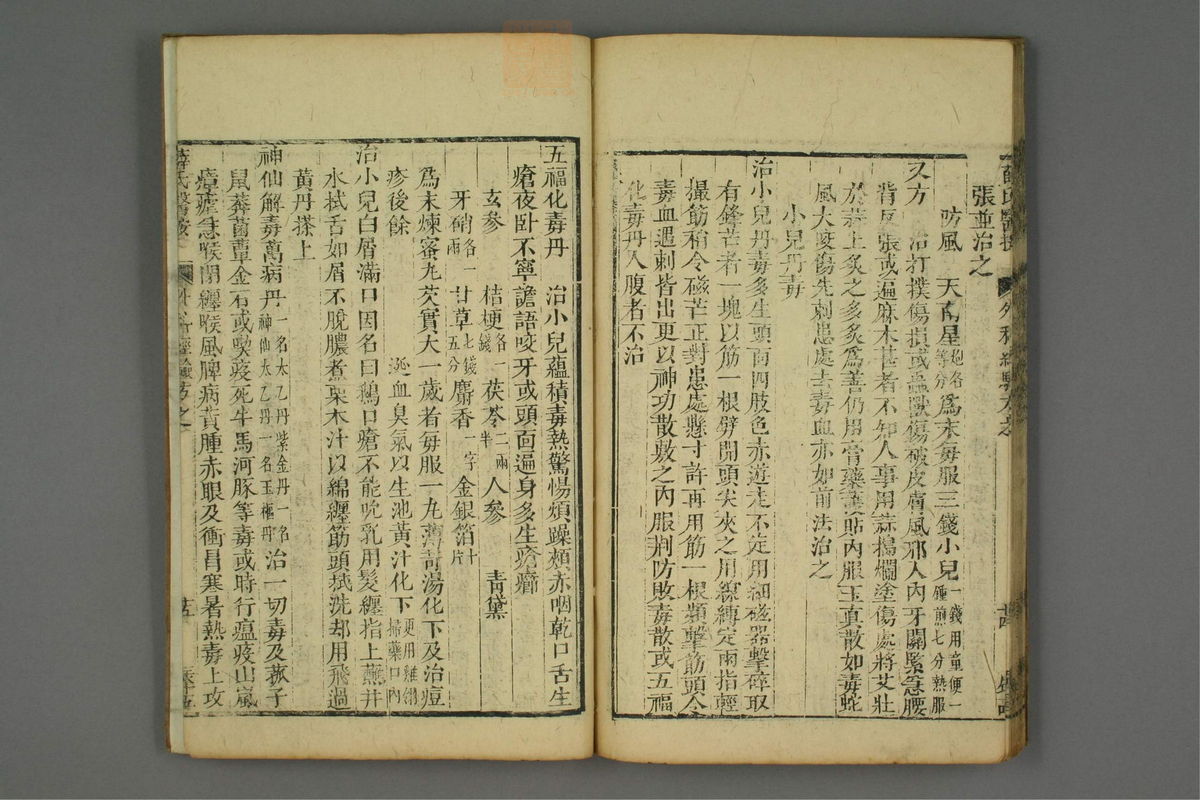 薛氏醫按 外科經驗方 卄四
張並治之
防風 天南星炮各等分為末每服三錢小兒一錢用童便一鍾煎七分熱服
又方 治打撲傷損或蟲獸傷破皮膚風邪入內牙關緊急腰
背反張或遍麻木甚者不知人事用蒜搗爛塗傷處將艾壯
於蒜上灸之多灸為善仍用膏藥護貼內服玉真散如毒蛇
風犬咬傷先刺患處去毒血亦如前法治之
小兒丹毒
治小兒丹毒多生頭面四肢色赤遊走不定用細磁器擊碎取
有鋒芒者一塊以筋一根劈開頭尖夾之用線縛定兩指輕
撮筋稍令磁芒正對患處懸寸許再用筋一根頻擊筋頭令
毒血遇刺皆出更以神功散敷之內服荆防敗毒散或五福
化毒丹入腹者不治
五福化毒丹 治小兒蘊積毒熱驚惕煩躁頰赤咽乾口舌生
瘡夜卧不寧譫語咬牙或頭面遍身多生瘡癤
玄參 桔梗各一錢 茯苓二兩半 人參 青黛
牙硝各一兩 甘草七錢五分 麝香一字 金銀箔十片
為末煉蜜丸芡實大一歲者每服一丸薄荷湯化下及治痘
疹後餘 涎血臭氣以生地黃汁化下更用雞翎掃藥口內
治小兒白屑滿口因名曰鵝口瘡不能吮乳用髮纏指上蘸井
水拭舌如屑不脫膿煮栗木汁以綿纏筋頭拭洗却用飛過
黃丹搽上
神仙解毒萬病丹一名太乙丹紫金丹一名神仙太乙丹一名玉樞丹 治一切毒及菰子
鼠莽菌蕈金石或喫疫死牛馬河豚等毒或時行瘟疫山嵐
瘴瘧急喉閉纏喉風脾病黃腫赤眼及衝昌寒暑熱毒上攻
薛氏醫按 外科經驗方 卄五